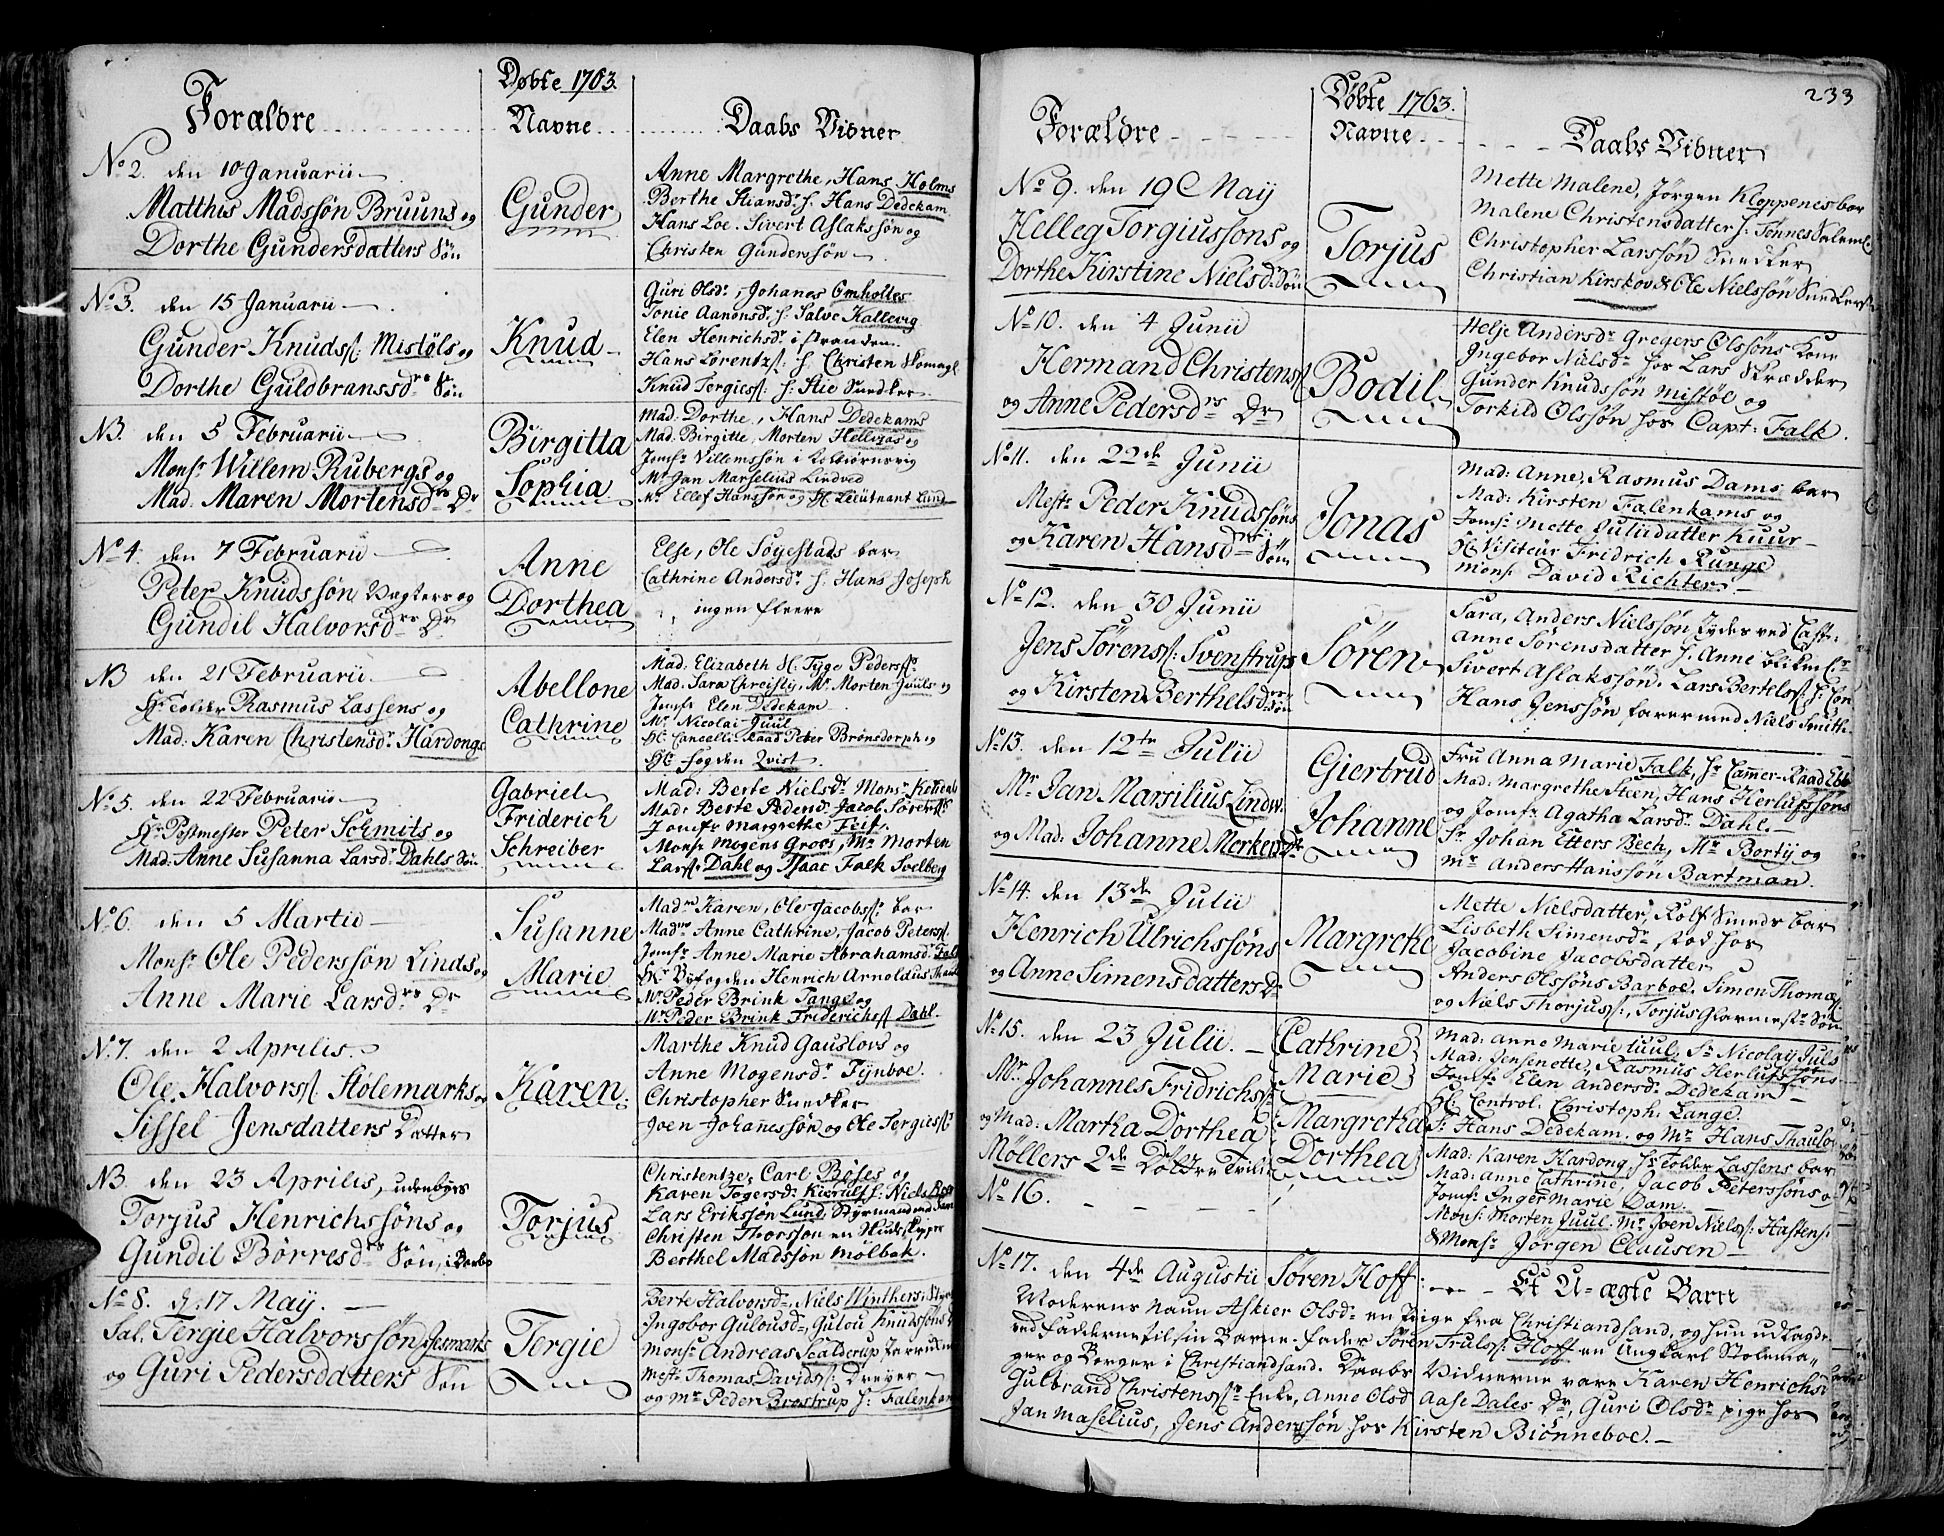 Forældre
Døbte 1763.
Navne
Daabs Vidner
No 2. den 10 Januarii
Matthis Madssøn Bruuns og
Dorthe Gundersdatters Søn
Gunder
Anne Margrethe, Hans Holms
Berthe Stiansdr. h. Hans Dedekam
Hans Loe. Sivert Aslakssøn og
Christen Gunderssøn
No 3. den 15 Januarii
Gunder Knuds. Mistøls og
Dorthe Guldbranssdrs Søn
Knud
Guri Olsdr, Johanes Omholtes
Tonie Aanonsdr. h. Salve Kallevig
Elen Henrichsdr. i stranden.
Hans Lorentzs. h. Christen
Knud Tergies. h. Stie Snedker
NB. den 5 Februarii
Monsr Willem Rubergs og
Mad. Maren Mortensdrs Dr
Birgitta
Sophia
Mad: Dorthe, Hans Dedekams
Mad. Birgitte, Morten
Jomfr Villemssøn i
Mr Jan Marselius Lindved
Mr Ellef Hanssøn og Hr Leiutnant Lund
No 4. den 7 Februarii
Peter Knudssøn Vegters og
Gundil Halvorsdrs Dr
Anne
Dorthea
Else, Ole Søgestads bar
Cathrine Andersdr. h. Hans Joseph
ingen fleere
NB den 21 Februarii
Hr Tolder Rasmus Lassens og
Mad. Karen Christensdr Hardongs
Abellone
Cathrine
Mad. Elizabeth Hr. Tyge Peders
Mad. Sara Chreisty, Mr Morten Juuls og
Jomfr Elen Dedekam
Mr Nicolai Juul
Hr Cancelli Raad Peter Brønsdorph og
Hr fogden Qvist.
No 5. den 22 Februarii
Hr Postmester Peter Schmits og
Mad. Anne Susanna Larsdr Dahls Søn
Gabriel
Friderich
Schreiber
Mad: Berte Nielsdr Monsr
Mad: Berte Pedersdr Jacob Sørens
Jomfr Margrethe Feif.
Monsr Mogens Groos, Mr Morten
Lars. Dahl og Isaac Falk Svelberg
No 6 den 5 Martii
Monsr Ole Pederssøn Linds og
Anne Marie Larsdrs Dr
Susanne
Marie
Madm Karen, Ole Jacobss. bar
Madm Anne Cathrine, Jacob Peters.
Jomfr Anne Marie Abrahamsdr Falk
Hr Byfogden Henrich Arnoldus Thaulo
Mr Peder Brink Tange og
Mr Peder Brink Friderichs. Dahl.
No 7. den 2 Aprilis.
Ole Halvors. Stølemarks og
Sissel Jensdatters Datter
Karen
Marthe Knud Gauslovs og
Anne Mogensdr Fynboe.
Christopher Snedker
Joen Johanessøn og Ole Tergies.
NB den 23 Aprilis, udenbyes
Torjus Henrichssøns og
Gundil Børresdrs Søn, i Barbo
Torjus
Christentze, Carl Bøses og
Karen Togersdr Kierulf h. Niels
Lars Erikssøn Lund, Styrmand
Christen Thorssøn en
Berthel Madssøn Mølbak.
No 8. d. 17 May.
Sal. Tergie Halvorssøn
og Guri Pedersdatters Søn
Tergie
Berte Halvorsdr, Niels Winthers
Ingebor Gulousdr, Gulou Knudssøns
Monsr Andreas Scalderup,
Mestr Thomas Davids. Dreyer
og Mr Peder Brostrup h. Falenkam
233
Forældre
Døbte 1763.
Navne
Daabs Vidner
No 9. den 19 May
Helleg Torgiussøns og
Dorthe Kirstine Nielsdr Søn
Torjus
Mette Malene, Jørgen Kloppenes bar
Malene Christensdatter h. Tønnes
Christopher Larssøn Snedker
Christian Kirskov & Ole Nielssøn Snedkers
No 10. den 4 Junii
Hermand Christens.
og Anne Pedersdrs Dr
Bodil
Helje Andersdr Gregers Olssøns kone
Ingebor Nielsdr hos Lars Skrædder
Gunder Knudssøn Mistøl og
Torkild Olssøn hos Capt: Falk.
No 11. den 22de Junii
Mestr Peder Knudssøns
og Karen Hansdrs Søn
Jonas
Mad: Anne, Rasmus Dams bar
Mad: Kirsten Falenkams og
Jomfr Mette Juliidatter Kuur
Hr Visiteur Fridrich Runge
Mons: David Richter.
No 12. den 30 Junii
Jens Sørens. Svenstrups
og Kirsten Berthelsdrs Søn
Søren
Sara, Anders Nielssøn Jydes ved
Anne Sørensdatter h. Anne
Sivert Aslakssøn. Lars Bertels.
Hans Jenssøn, farer med Niels Smith
No 13. den 12te Julii
Mr Jan Marsilius Lindv.
og Mad: Johanne Merkersdr
Giertrud
Johanne
Fru Anna Marie Falk, Hr Cammer-Raad Ebb
Mad: Margrethe Steen, Hans Herlufssøns
og Jomfr Agatha Larsdr Dahl.
Sr Johan Etters Bech, Mr Borty og
Mr Anders Hanssøn Bartman.
No 14. den 13de Julii
Henrich Ulrichssøns
og Anne Simensdatters Dr
Margrethe
Mette Nielsdatter, Rolf Smeds bar
Lisbeth Simensdr stod hos
Jacobine Jacobsdatter
Anders Olssøns Barboe. Simen Thomæ
og Niels Thorjus., Torjus Glarmestrs Søn
No 15. den 23 Julii.
Mr Johannes Fridrichs.
og Mad: Martha Dorthea
Møllers 2de Døttre Tvilling
No 16.
Cathrine
Marie
Margretha
Dorthea
Mad: Anne Marie Juul, Sr Nicolay Juls
Mad: Jensenette, Rasmus Herlufssøns
Jomfr Elen Andersdr Dedekam
Hr. Control. Christoph. Lange
Sr Hans Dedekam og Mr Hans Thaulo
Mad: Karen Hardong, Hr Tolder Lassens bar
Mad: Anne Cathrine, Jacob Peterssøns og
Jomfr Inger Marie Dam.
Mons: Morten Juul. Mr Joen Niels. Hastens.
& Monsr Jørgen Clausen
No 17. den 4de Augustii Søren Hoff: Et U-ægte Barn
Moderens Naun Askier Olsdr en Pige fra Christiandsand, og hun udlagde
ved Fadderne til sin Barne-fader Søren Truls. Hoff en Ungkarl Stolema-
ger og Borger i Christiandsand. Daabs Vidnerne vare Karen Henrichsd
Gulbrand Christens. Enke, Anne Olsd Aase Dales Dr, Guri Olsdr pige hos
Jan Maselius, Jens Anderssøn hos Kirsten Biønneboe.